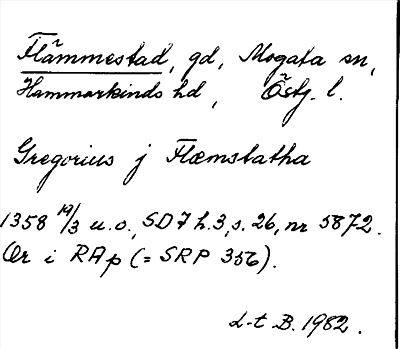 Flämmestad, gd, Mogata sn,
Hammarkinds hd, Östg. l.
Gregorius j Flæmstatha
1358 19/3 u.o., SD 7 h.3, s. 26, nr 5872.
Or i RAp (= SRP 356).
L-t B. 1982.